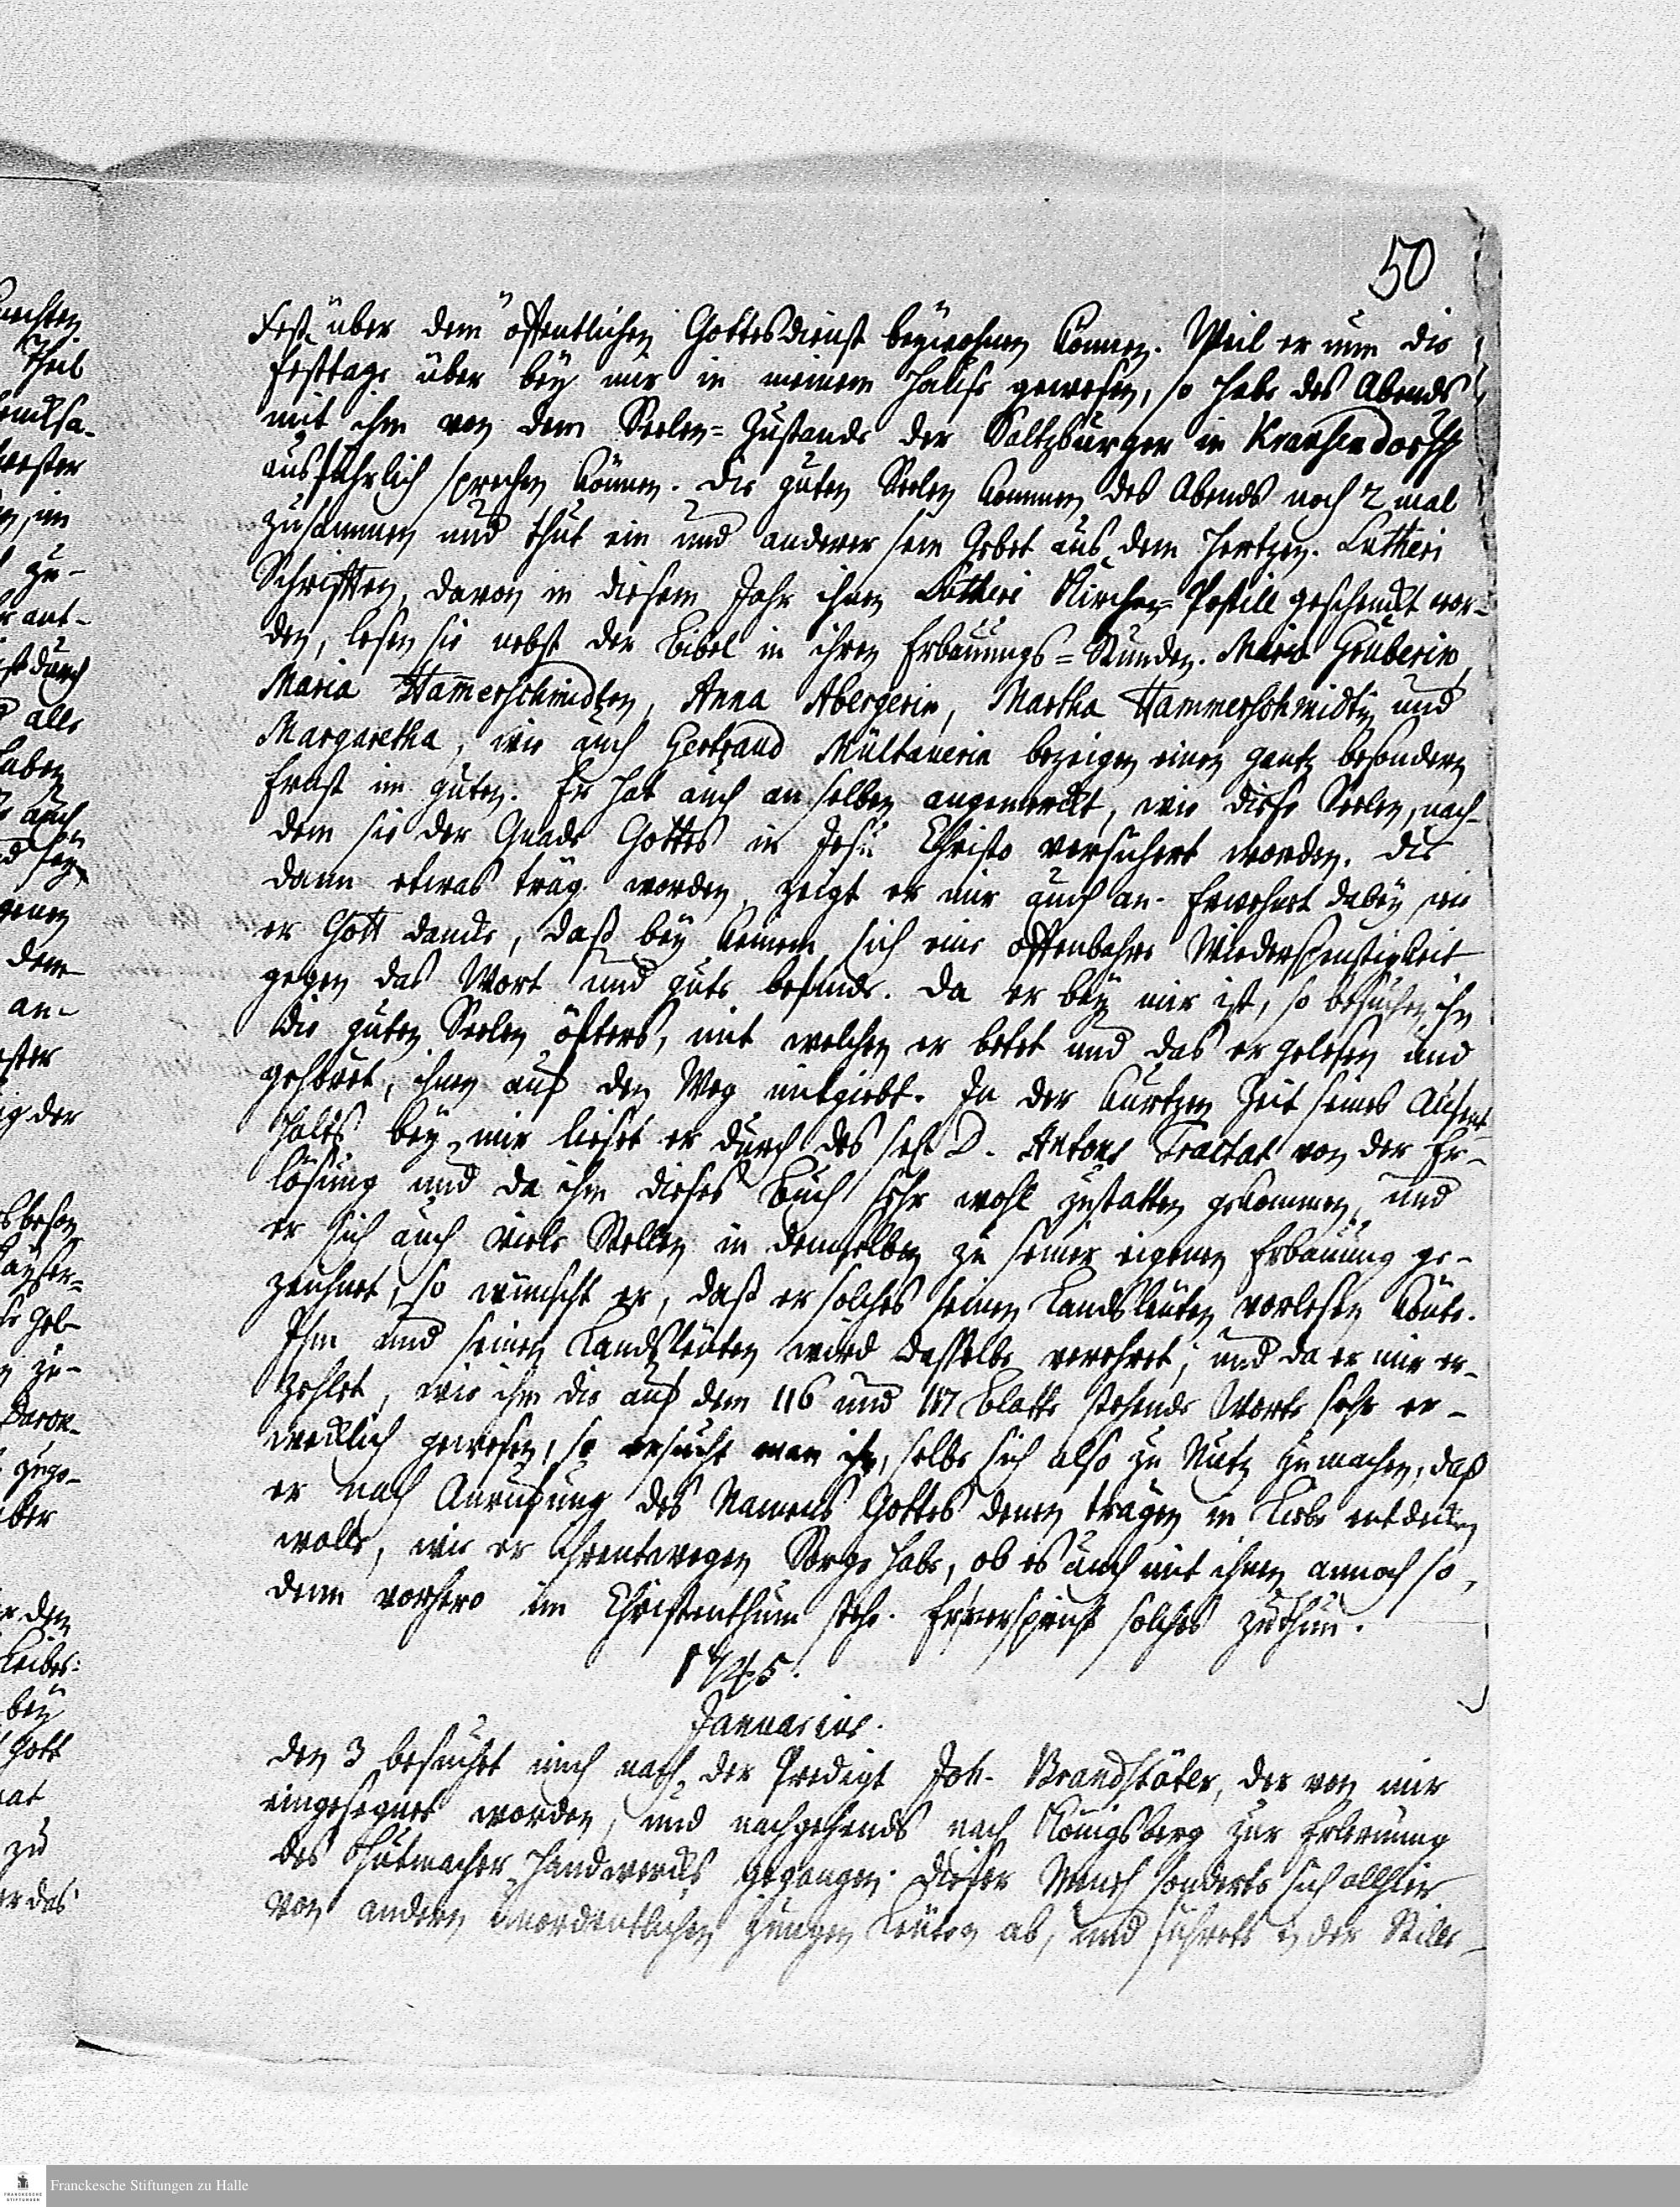 50
Fest über dem öffentlichen Gottesdienst beywohnen können. Weil er nun die
Festtage über bey mir in meinem Hause gewesen, so habe des Abends
mit ihm von dem Seelen-Zustande der Saltzburger in Krausendorff
ausführlich sprechen können. Die guten Seelen kommen des Abends noch 2 mal
zusammen und thut ein und anderer sein Gebet aus dem Hertzen. Lutheri
Schrifften, davon in diesem Jahr ihnen Lutheri Kirchen-Postill geschenckt wor-
den, lesen sie nebst der Bibel in ihren Erbauungs-Stunden. Maria Gruberin,
Maria Hammerschmidten, Anna Abergerin, Martha Hammerschmidtin und
Margaretha, wie auch Gertraud Mültanerin bezeigen einen gantz besondern
Ernst im guten. Er hat auch an selben angemerckt, wie diese Seelen, nach-
dem sie der Gnade Gottes in Jesu Christo versichert worden. Die
dann etwas träg worden, zeigt er mir auch an. Erwehnet dabey wie
er Gott dancke, daß bey keinem sich eine offenbahre Wiederspenstigkeit
gegen das Wort und gute befinde. Da er bey mir ist, so besuchen ihn
die guten Seelen öfters, mit welchen er betet und das er gelesen und
gehöret, ihnen auf den Weg mitgiebt. In der kurtzen Zeit seines Aufent-
halts bey mir lieset er durch des sel. D. Antons Tractat von der Er-
lösung und da ihm dieses Buch sehr wohl zustatten gekommen, und
er sich auch viele Stellen in demselben zu seiner eigenen Erbauung ge-
zeichnet, so wünscht er, daß er solches seinen Landsleuten vorlesen könte.
Ihm und seinen Landsleuten wird dasselbe verehret; und da er mir er-
zehlet, wie ihm die auf dem 116 und 117 Blatte stehende Worte sehr er-
wecklich gewesen, so ersucht man ihn, selbe sich also zu Nutz zu machen, daß
er nach Anrufung des Namens Gottes denen trägen in Liebe entdecken
wolle, wie er ihrentwegen Sorge habe, ob es auch mit ihnen annoch so,
denn vorhero im Christenthum stehe. Er verspricht solches zu thun.
1745.
Januarius.
den 3 besucht mich nach der Predigt Joh. Brandstäter, der von mir
eingesegnet worden, und nachgehends nach Königsberg zur Erlernung
des Huthmacher-Handwercks gegangen. Dieser Mensch sonderte sich allhier
von andern unordentlichen jungen Leuten ab, und führete in der Stille
Franckesche Stiftungen zu Halle